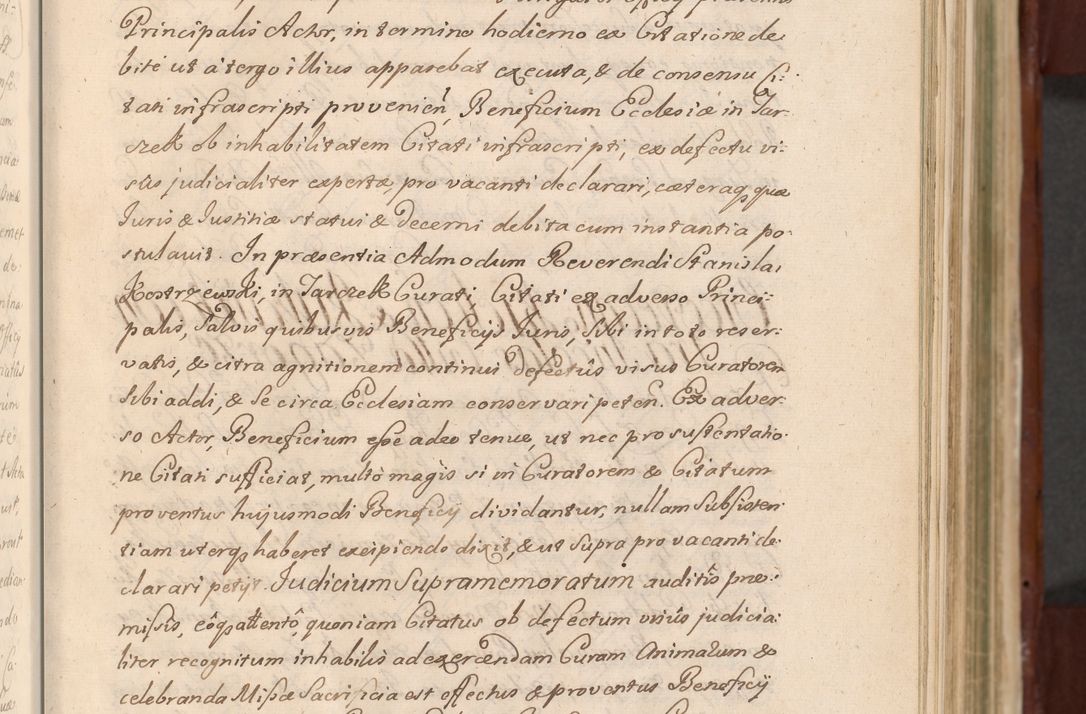 Principalis Actor, in termino hodierno ex Citatione de
bite ut à tergo illius apparebat executa, & de consensu Ci:
tati infrascripti provenien, Beneficium Ecclesiæ in Tar
czek ob inhabilitatem Citati infrascripti, ex defectu vi:
sûs judicialiter expertæ, pro vacanti declarari, cæteraq quæ
Juris & Justitiæ statui & decerni debita cum instantia po
stulavit. In præsentia Admodum Reverendi Stanislai
Kostrzewski, in Tarczek Curati, Citati ex adverso Princi:
palis, salvis quibusvis Beneficijs Juris, sibi in toto reser
vatis, & citra agnitionem continui defectûs visus Curatorem
sibi addi, & se circa Ecclesiam conservari peten. Ex adver
so Actor, Beneficium esse adeo tenue, ut nec pro sustentatio
ne Citati sufficiat, multò magis si in Curatorem & Citatum
proventus hujusmodi Beneficij dividantur, nullam subsisten
tiam uterq haberet excipiendo dixit, & ut supra pro vacanti de
clarari petijt Judicium supramemoratum auditis præ:
missis, eôq attentô, quoniam Citatus ob defectum visûs judicia
liter recognitum inhabilis ad exercendam Curam Animarum &
celebranda Missæ Sacrificia est effectus & proventus Beneficij